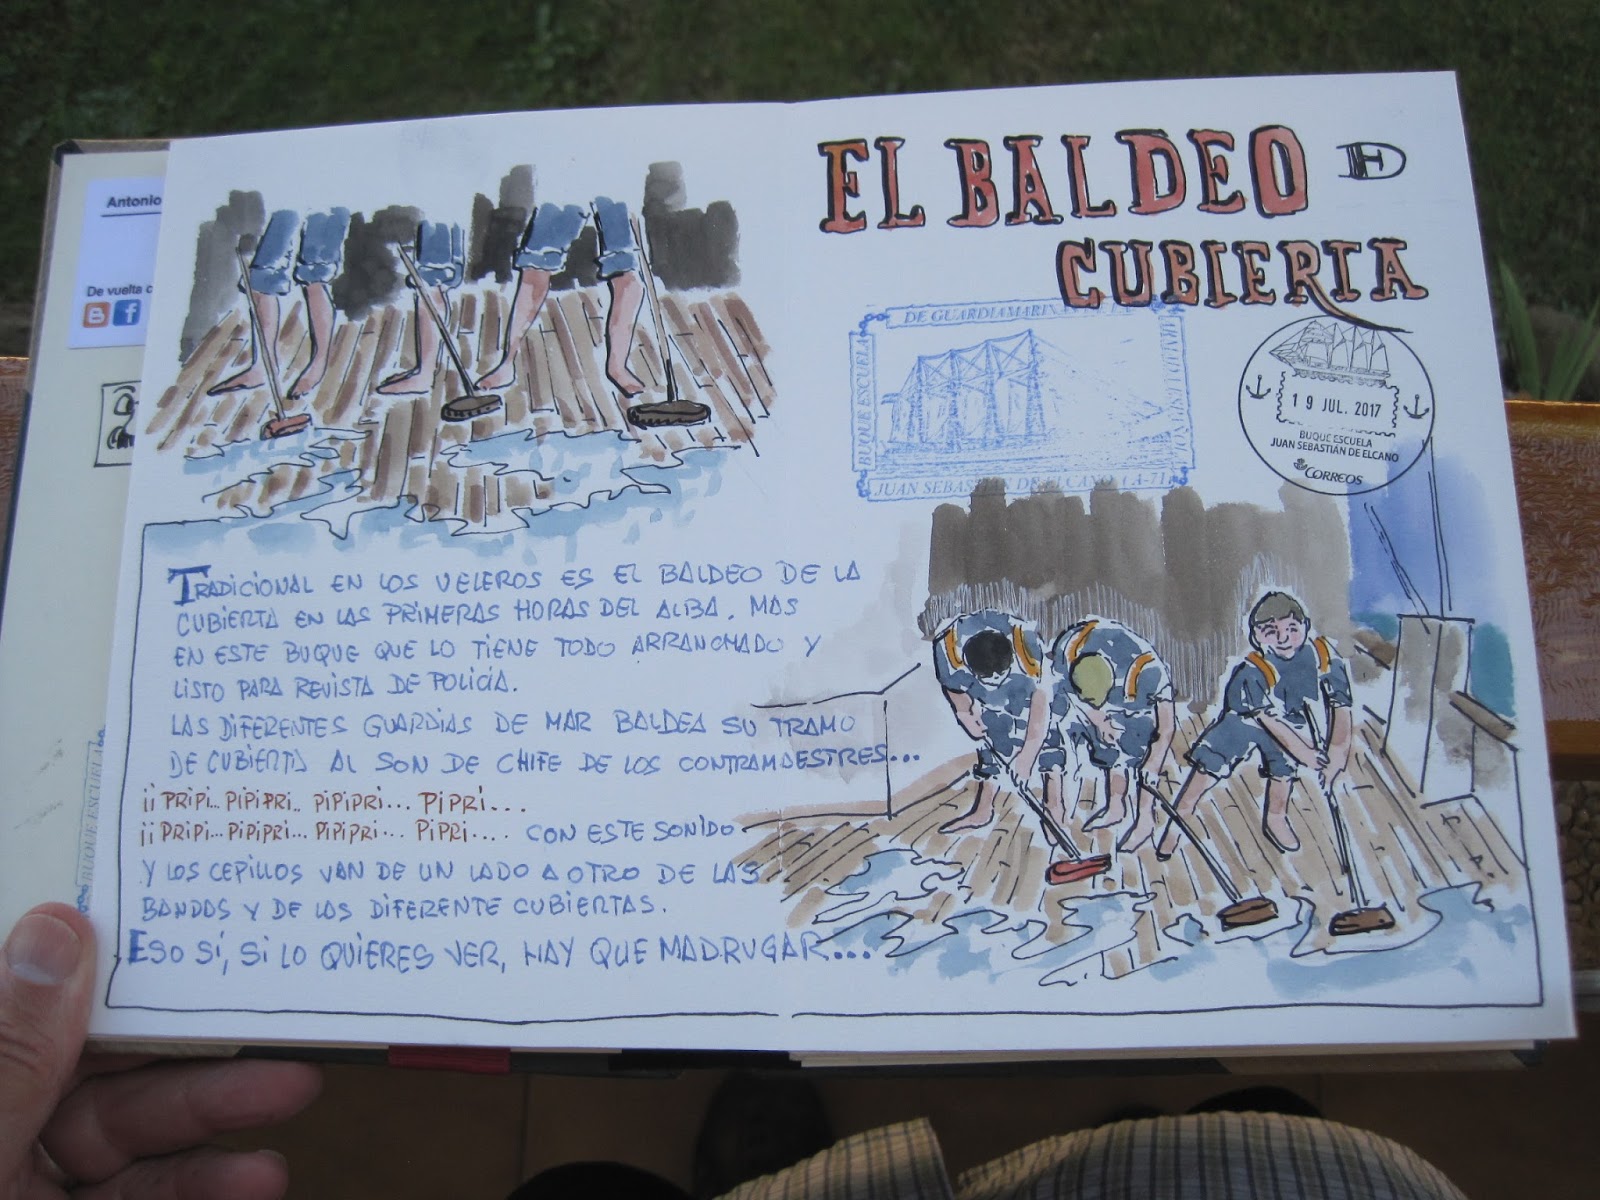 Antonio
De vuelta c
EL BALDEO DE
CUBIERTA
DE GUARDIAMARINAS
BUQUE ESCUELA
JUAN SEBASTIAN DE ELCANO (A-71)
19 JUL. 2017
BUQUE ESCUELA
JUAN SEBASTIÁN DE ELCANO
CORREOS
TRADICIONAL EN LOS VELEROS ES EL BALDEO DE LA
CUBIERTA EN LAS PRIMERAS HORAS DEL ALBA. MAS
EN ESTE BUQUE QUE LO TIENE TODO ARRANCHADO Y
LISTO PARA REVISTA DE POLICÍA.
LAS DIFERENTES GUARDIAS DE MAR BALDEA SU TRAMO
DE CUBIERTA AL SON DE CHIFE DE LOS CONTRAMAESTRES...
¡¡ PRIPI... PIPIPRI.. PIPIPRI... PIPRÍ...
¡¡ PRIPI... PIPIPRI... PIPIPRI... PIPRI.... CON ESTE SONIDO
Y LOS CEPILLOS VAN DE UN LADO A OTRO DE LAS
BANDAS Y DE LAS DIFERENTE CUBIERTAS.
ESO SÍ, SI LO QUIERES VER, HAY QUE MADRUGAR...
BUQUE ESCUELA